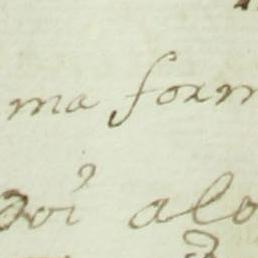 ma form
doi alo